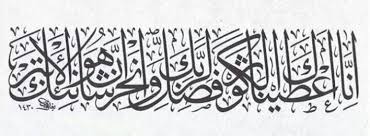 إنا أعطيناك الكوثر فصل لربك وانحر إن شانئك هو الأبتر